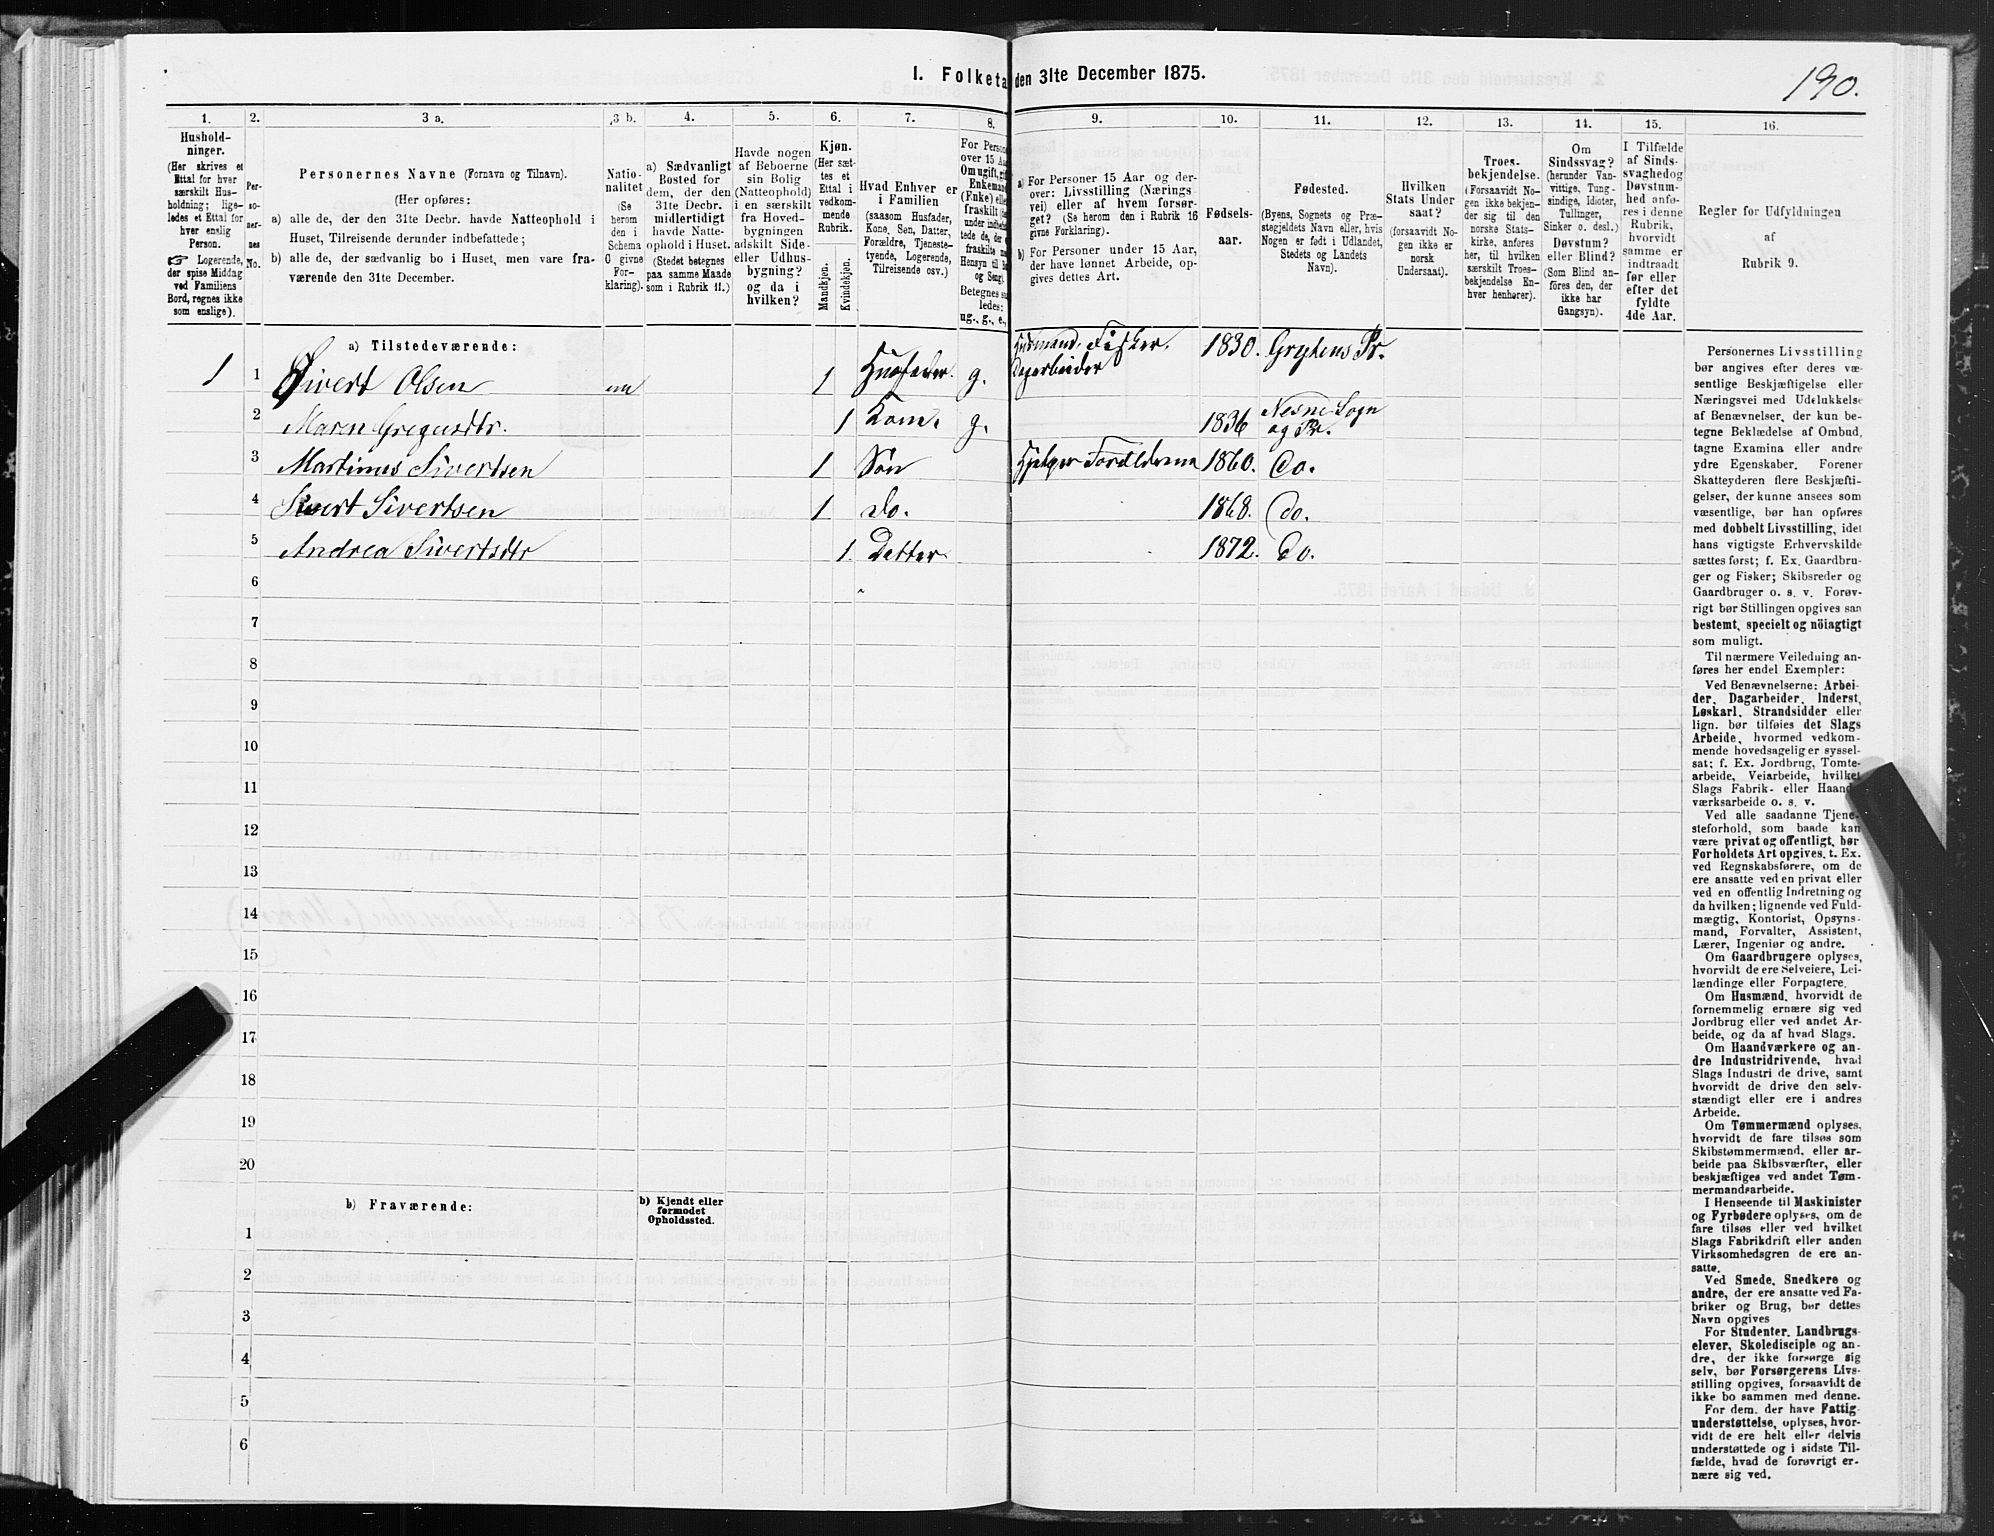 190.
I. Folketa den 31te December 1875.
1.
Hushold-
ninger.
(Her skrives et
Ettal for hver
særskilt Hus-
holdning; lige-
ledes et Ettal for
hver enslig
Person.
☞ Logerende,
der spise Middag
ved Familiens
Bord, regnes ikke
som enslige).
2.
Per-
so-
ner-
nes
No.
3 a.
Personernes Navne (Fornavn og Tilnavn).
(Her opføres:
a) alle de, der den 31te Decbr. havde Natteophold i
Huset, Tilreisende derunder indbefattede;
b) alle de, der sædvanlig bo i Huset, men vare fra-
værende den 31te December.
3 b.
Natio-
nalitet
(Se
herom
den i
Schema
C givne
For-
klaring).
4.
a) Sædvanligt
Bosted for
dem, der den
31te Decbr.
midlertidigt
havde Natte-
ophold i Huset.
(Stedet betegnes
paa samme Maade
som i Rubrik 11.)
5.
Havde nogen
af Beboerne
sin Bolig
(Natteophold)
i en særskilt
fra Hoved-
bygningen
adskilt Side-
eller Udhus-
bygning?
og da i
hvilken?
6.
Kjøn.
(Her sæt-
tes et
Ettal i
vedkom-
mende
Rubrik.
Mandkjøn.
Kvindekjøn.
7.
Hvad Enhver er
i Familien
(saasom Husfader,
Kone, Søn, Datter,
Forældre, Tjeneste-
tyende, Logerende,
Tilreisende osv.)
8.
For Person
over 15 Aa
Om ugift, gif
Enkemand
(Enke) elle
fraskilt
under
tede de, der
fraskilte
Hensyn til B
og Seng).
Betegnes
ledes:
ug., g., e.,
9.
a) For Personer 15 Aar og der-
over: Livsstilling (Nærings
vei) eller af hvem forsør-
get? (Se herom den i Rubrik 16
givne Forklaring).
b) For Personer under 15 Aar,
der have lønnet Arbeide, op-
gives dettes Art.
10.
Fødsels-
aar.
11.
Fødested.
(Byens, Sognets og Præ-
stegjeldets Navn eller, hvis
Nogen er født i Udlandet,
Stedets og Landets
Navn).
12.
Hvilken
Stats Under
saat?
(forsaavidt No-
gen ikke er
norsk
Undersaat).
13.
Troes-
bekjendelse.
(Forsaavidt No-
gen ikke bekjen-
der sig til den
norske Stats-
kirke, anføres
her, til hvilken
særskilt Troes-
bekjendelse En-
hver henhører).
14.
Om
Sindssvag?
(herunder Van-
vittige, Tung-
sindige, Idioter,
Tullinger,
Sinker o. desl.)
Døvstum?
eller Blind?
(Som Blind an-
føres den, der
ikke har
Gangsyn).
15.
I Tilfælde
af Sinds-
svaghed og
Døvstum-
hed anfø-
res i denne
Rubrik,
hvorvidt
samme er
indtraadt
før eller
efter det
fyldte
4de Aar.
16.
Regler for Udfyldningen
af
Rubrik 9.
a) Tilstedeværende:
1 1 Sivert Olsen nn 1 Husfader. g. Husmand, Fisker. Dagarbeider 1830. Grytens Pr.
2 Maren Gregusdtr. 1 Kone. g. 1836 Nesne Sogn og Pr.
3 Martinus Sivertsen 1 Søn Hjelper Forældrerne 1860. Do.
4 Sivert Sivertsen 1 do. 1868. do.
5 Andrea Sivertsdtr 1. Datter 1872. Do.
6
7
8
9
10
11
12
13
14
15
16
17
18
19
20
b) Fraværende:
b) Kjendt eller
formodet
Opholdssted.
1
2
3
4
5
6
Personernes Livsstilling
bør angives efter deres væ-
sentlige Beskjæftigelse eller
Næringsvei med Udelukkelse
af Benævnelser, der kun be-
tegne Beklædelse af Ombud,
tagne Examina eller andre
ydre Egenskaber. Forener
Skatteyderen flere Beskjæfti-
gelser, der kunne ansees som
væsentlige, bør han opføres
med dobbelt Livsstilling, idet
hans vigtigste Erhvervskilde
sættes først; f. Ex. Gaardbru-
ger og Fisker; Skibsreder og
Gaardbruger o. s. v. Forøv-
rigt bør Stillingen opgives saa
bestemt, specielt og nöiagtigt
som muligt.
Til nærmere Veiledning an-
føres her endel Exempler:
Ved Benævnelserne: Arbei-
der, Dagarbeider, Inderst,
Løskarl, Strandsidder eller
lign. bør tilføies det Slags
Arbeide, hvormed vedkom-
mende hovedsagelig er syssel-
sat; f. Ex. Jordbrug, Tomte-
arbeide, Veiarbeide, hvilket
Slags Fabrik- eller Haand-
værksarbeide o. s. v.
Ved alle saadanne Tjene-
steforhold, som baade kan
være privat og offentligt, bør
Forholdets Art opgives, t. Ex.
ved Regnskabsførere, om de
ere ansatte ved en privat eller
ved en offentlig Indretning og
da hvilken; lignende ved Fuld-
mægtig, Kontorist, Opsyns-
mand, Forvalter, Assistent,
Lærer, Ingeniør og andre.
Om Gaardbrugere oplyses,
hvorvidt de ere Selveiere, Lei-
lændinge eller Forpagtere.
Om Husmænd, hvorvidt de
fornemmelig ernære sig ved
Jordbrug eller ved andet Ar-
beide, og da af hvad Slags.
Om Haandværkere og an-
dre Industridrivende, hvad
Slags Industri de drive, samt
hvorvidt de drive den selv-
stændigt eller ere i andres
Arbeide.
Om Tømmermænd oplyses,
hvorvidt de fare tilsøs som
Skibstømmermænd, eller ar-
beide paa Skibsværfter, eller
beskjæftiges ved andet Tøm-
mermandsarbeide.
I Henseende til Maskinister
og Fyrbødere oplyses, om de
fare tilsøs eller ved hvilket
Slags Fabrikdrift eller anden
Virksomhedsgren de ere an-
satte.
Ved Smede, Snedkere og
andre, der ere ansatte ved Fa-
briker og Brug, bør dettes
Navn opgives
For Studenter, Landbrugs-
elever, Skoledisciple og an-
dre, der ikke forsørge sig
selv, bør Forsørgerens Livs-
stilling opgives, forsaavidt de
ikke bo sammen med denne.
For dem, der have Fattig-
understøttelse, oplyses, hvor-
vidt de ere helt eller delvis
understøttede og i sidste Til-
fælde, hvad de forøvrigt er-
nære sig ved.